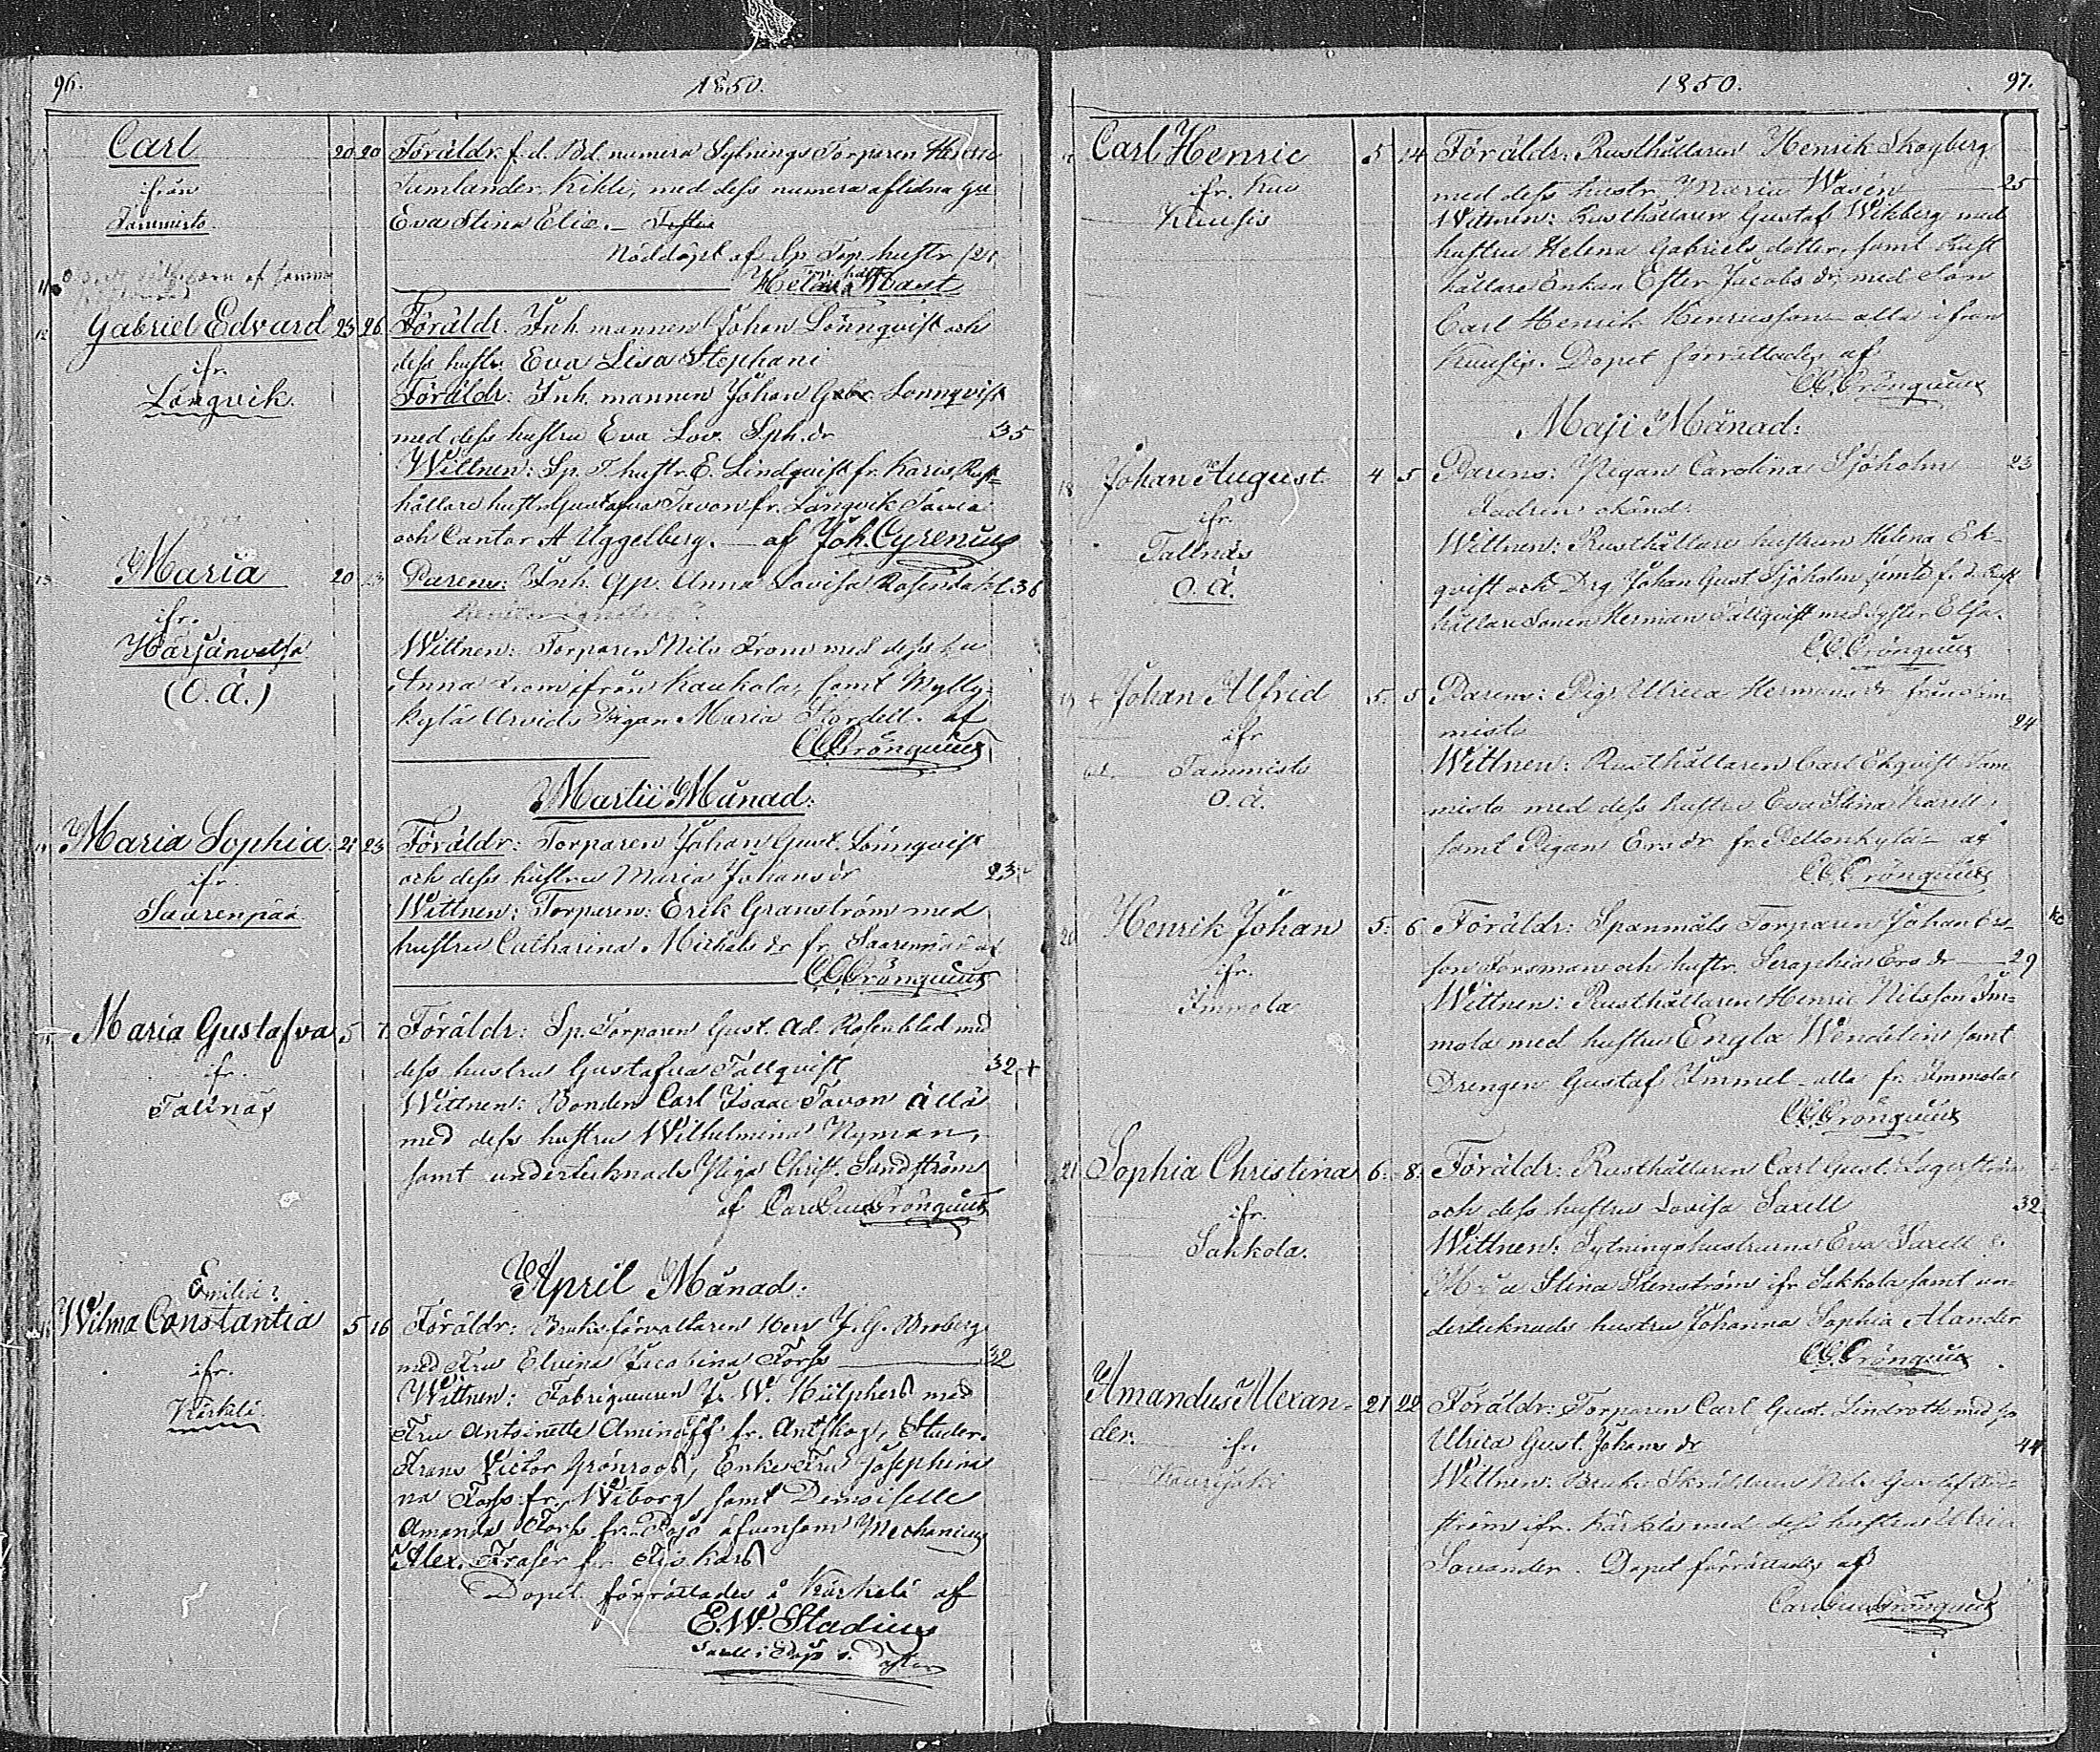 96.
1850.
Carl
20 20
Föräldr. f. d. Bd. numera Sytnings Torparen Henric
ifrån
Tammisto.
Tamlander Kihli, med dess numera aflidna hu
Eva Stina Eliæ.
Nöddöpt af Sp. Torp. hustr
Helena Mast
11
12
Gabriel Edvard
23 26
ifr.
Långvik.
Föräldr. Inh. mannen Johan Lönnqvist och
dess hustr. Eva Lisa Stephani
Föräldr: Inh. mannen Johan Gabr Lönnqvist
med dess hustru Eva Lov. Sph. dr
35
Wittnen: Sp. T. hustr. E. Lindqvist fr. Karis, Rust=
hållare hustr. Gustafva Tavon fr. Långvik
och Cantor A Uggelberg. af Joh. Cyrenius
13
Maria
20 23
ifr.
Härjänvatsa
(O. ä.)
Parens: Inh. qvp. Anna Lovisa Rosendahl 36
Wittnen: Torparen Nils From med dess hu
Anna From ifrån Kaukola, samt Mylly-
kylä Arvids Pigan Maria Nordell. af
CG Crönqueux
Martii Månad:
Maria Sophia
21 23
ifr.
Saarenpää
Föräldr: Torparen Johan Gust. Lönnqvist
och dess hustru Maria Johans dr
23
Wittnen: Torparen: Erik Granström med
hustru Catharina Michels dr fr. Saarenpää af
CG Crönqueux
Maria Gustafva
5 7
ifr.
Tallnäs
Föräldr: Sp. Torparen Gust. Ad. Rosenblad med
dess hustru Gustafva Tällqvist
32 +
Wittnen: Bonden Carl Isaac Tavon
med dess hustru Wilhelmina Nyman,
samt undertecknads Piga Christ. Sandström
af Carl Gust Crönqueux
April Månad:
Emilia?
Wilma Constantia
5 16
ifr.
Kärkilä
Föräldr: Bruksförvaltaren Herr J. G. Umberg
med Fru Elvina Jacobina Forss
32
Wittnen: Fabriqueuren J. W. Hülphers med
Fru Antoinette Aminoff fr. Antskog, Studer.
Frans Victor Grönroos, Enke Fru Josephi
na Forss fr. Wiborg, samt Demoiselle
Amanda Forss fr. Pojo äfvensom Mechanicus
Alex. Fraser fr. Fiskars
Dopet förrättades å Kärkelä af
E. W. Stadius
1850.
97.
Carl Henric
5 14
ifr. Kuu
Kuusis
Föräldr: Rusthållaren Henrik Skogberg
med dess hustr Maria Wasén
25
Wittnen: Rusthållaren Gustaf Wikberg med
hustru Helena Gabriels dotter, samt Rust
hållare Enkan Ester Jacobs dr, med Son
Carl Henrik Henricsson alla ifrån
Kuusis. Dopet förrättades af
CG Crönqueux
Maji Månad:
18
Johan August.
4 5
ifr.
Tallnäs
O. Ä.
Parens: Pigan Carolina Sjöholm
23
Fadren okänd:
Wittnen: Rusthållare hustrun Helena Ek-
qvist och Drg. Johan Gust. Sjöholm jemte f. d. Rust
hållare Sonen Herman Tällqvist med syster Elsa.
CG Crönqueux
19
+ Johan Alfrid
5. 5
ifr
Tammisto
O. ä.
Parens: Pigs Ulrica Hermans dr från Tam
misto
24
Wittnen: Rusthållaren Carl Ekqvist Tam
misto med dess hustru Eva Stina Karell,
samt Pigan Ers dr fr. Pellonkylä af
CG Crönqueux
20
Henrik Johan
5. 6
ifr.
Immola
Föräldr: Spanmåls Torparen Johan Ers-
son Forsman och hustr. Seraphia Ers dr
29
Wittnen: Rusthållaren Henric Nilsson Im=
mola med hustru Engla Wendelin samt
Drengen Gustaf Immel alla fr. Immola
CG Crönqueux
21
Sophia Christina
6. 8.
ifr.
Sakkola.
Föräldr: Rusthållaren Carl Gust. Lagerström
och dess hustru Lovisa Saxell
32
Wittnen: Sytningshustrurna Eva Saxell
Maja Stina Stenström ifr Sakkola samt un-
dertecknads hustru Johanna Sophia Alander
CG Crönqueux
Amandus Alexan-
der.
21 22
ifr.
Föräldr: Torparen Carl Gust. Lindroth med
Ulrica Gust. Johans dr
44
Wittnen: Bruks Skräddaren Nils Gustaf
ström ifr. Kärkelä med dess hustru Ulrica
Savander. Dopet förrättades af
Carl Gust Crönqueux